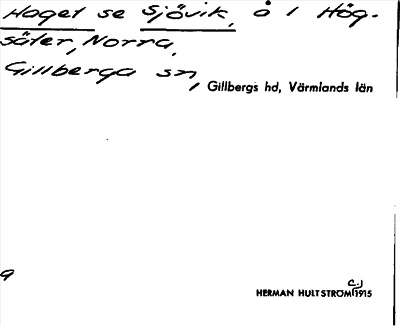 Haget se Sjövik, å 1 Hög-
säter, Norra,
Gillberga sn,
Gillbergs hd, Värmlands län
9
HERMAN HULTSTRÖM 1915